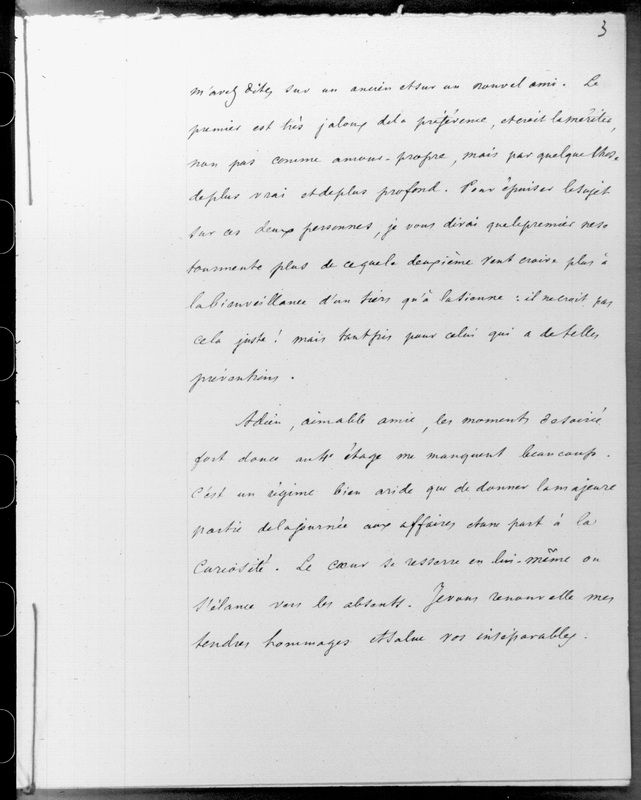 3
m'avez dites sur un ancien et sur un nouvel ami. Le
premier est très jaloux de la préférence, et croit la mériter,
non pas comme amour-propre, mais par quelque chose
de plus vrai et de plus profond. Pour épuiser le sujet
sur ces deux personnes, je vous dirai que le premier
tourmente plus de ce que la deuxième veut croire plus à
la bienveillance d'un tiers qu'à la sienne : il ne croit pas
cela juste ! mais tant pis pour celui qui a de telles
préventions.
Adieu, aimable amie, les moments de soirée
fort douce au 1er étage me manquent beaucoup.
C'est un régime bien aride que de donner la majeure
partie de la journée aux affaires et une part à la
curiosité. Le cœur se resserre en lui-même ou
s'élance vers les absents. Je vous renouvelle mes
tendres hommages et salue vos inséparables.